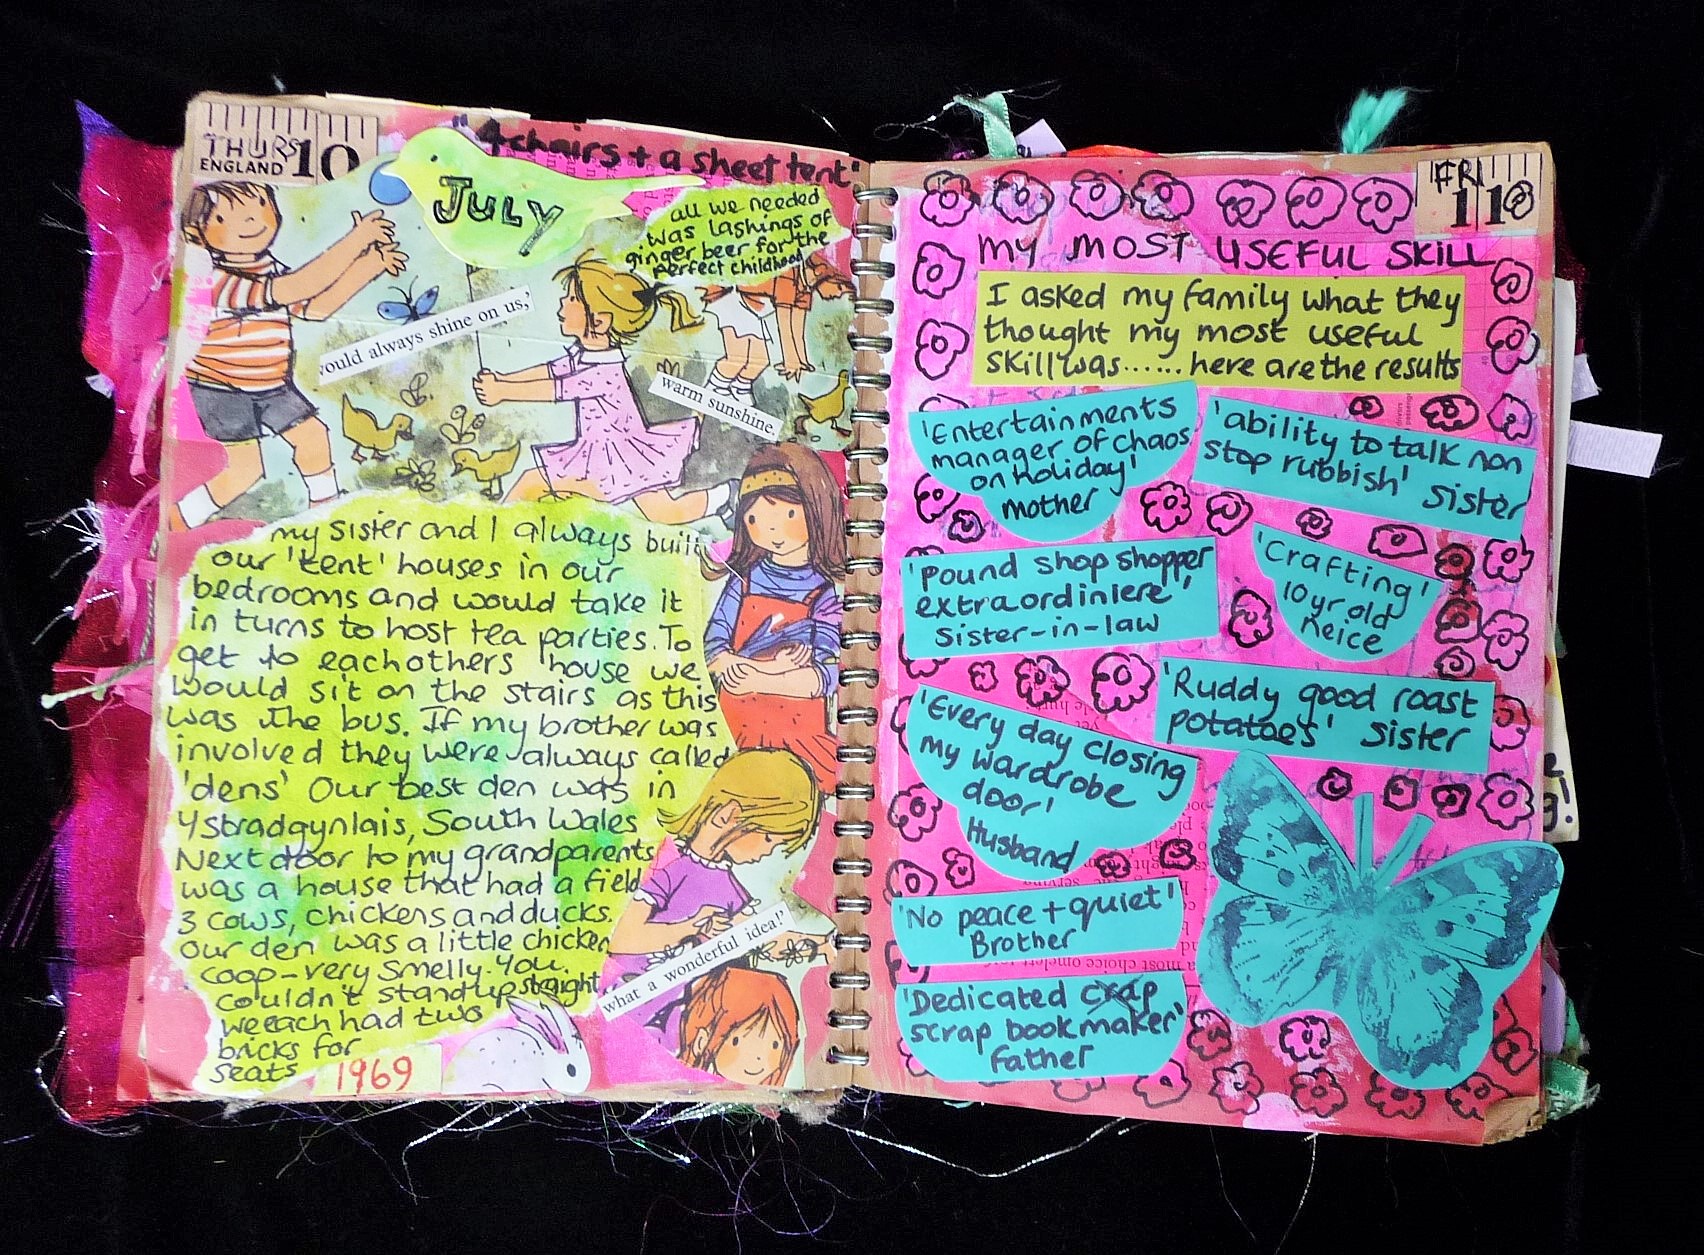 THURS
ENGLAND 10
JULY
"4 chairs + a sheet tent"
all we needed
was lashings of
ginger beer for the
perfect childhood
ould always shine on us,'
warm sunshine.
my sister and I always built
our 'tent' houses in our
bedrooms and would take it
in turns to host tea parties. To
get to eachothers house we
would sit on the stairs as this
was the bus. If my brother was
involved they were always called
'dens' Our best den was in
Ystradgynlais, South Wales
Next door to my grandparents
was a house that had a field
3 cows, chickens and ducks.
our den was a little chicken
coop-very smelly. You
couldn't stand up straight
we each had two
bricks for
seats
what a wonderful idea!'
1969
FRI
11
MY MOST USEFUL SKILL
I asked my family what they
thought my most useful
skill was...... here are the results
'Entertainments
manager of chaos
on holiday'
mother
'ability to talk non
stop rubbish' sister
'pound shop shopper
extraordiniere'
sister-in-law
'Crafting'
10 yr old
neice
'Ruddy good roast
potatoes' sister
'Every day closing
my wardrobe
door'
Husband
'No peace + quiet'
Brother
a most choice omelett
'Dedicated crap
scrap book maker'
father